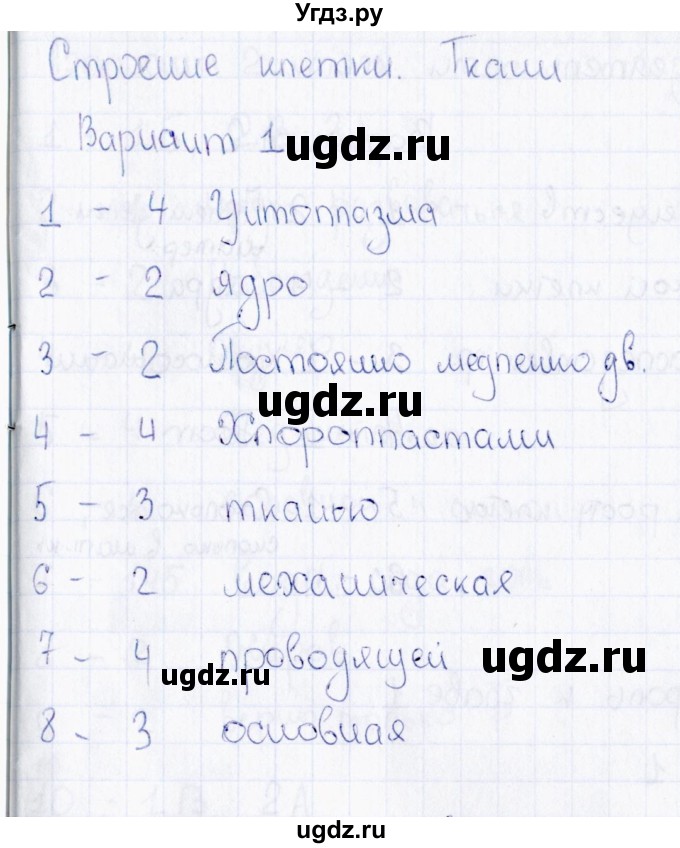 Угдз.ру
Строение клетки. Ткани
Вариант 1
ugdz.ru
1 - 4 Цитоплазма
2 - 2 ядро
3 - 2 Постоянно медленно дв.
ugdz.ru
4 - 4 Хлороппастами
5 - 3 тканью
6 - 2 механическая
7 - 4 проводящей
ugdz.ru
ugdz.ru
8 - 3 основная
ugdz.ru